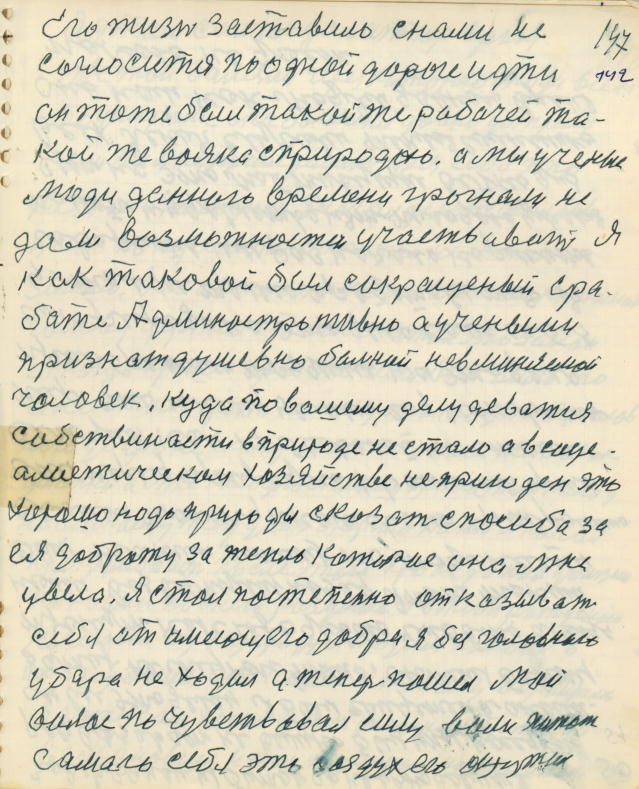 Его жизн заставиль снами не 147
согласится по одной дороге идти 142
он тоже был такой же рабочей та-
кой же вояка с природою. а мы ученые
люди данного времени грыгнали не
дали возможности участвиват Я
как таковой был сокращеный сра-
боте Административно а учеными
признат душевно болной невминяемой
человек. куда по вашему делу деватия
собствиности в природе не стало а в соце-
алистическом хозяйстве непригоден это
хорошо надо природы сказат спосиба за
ея доброту за тепло которое она мне
увела. Я стал постепенно отказыват
себя от имеющего добра я без головного
убора не ходил а тепер пошел Мой
волос почувствовал силу воли
самаго себя это воздух его окружил